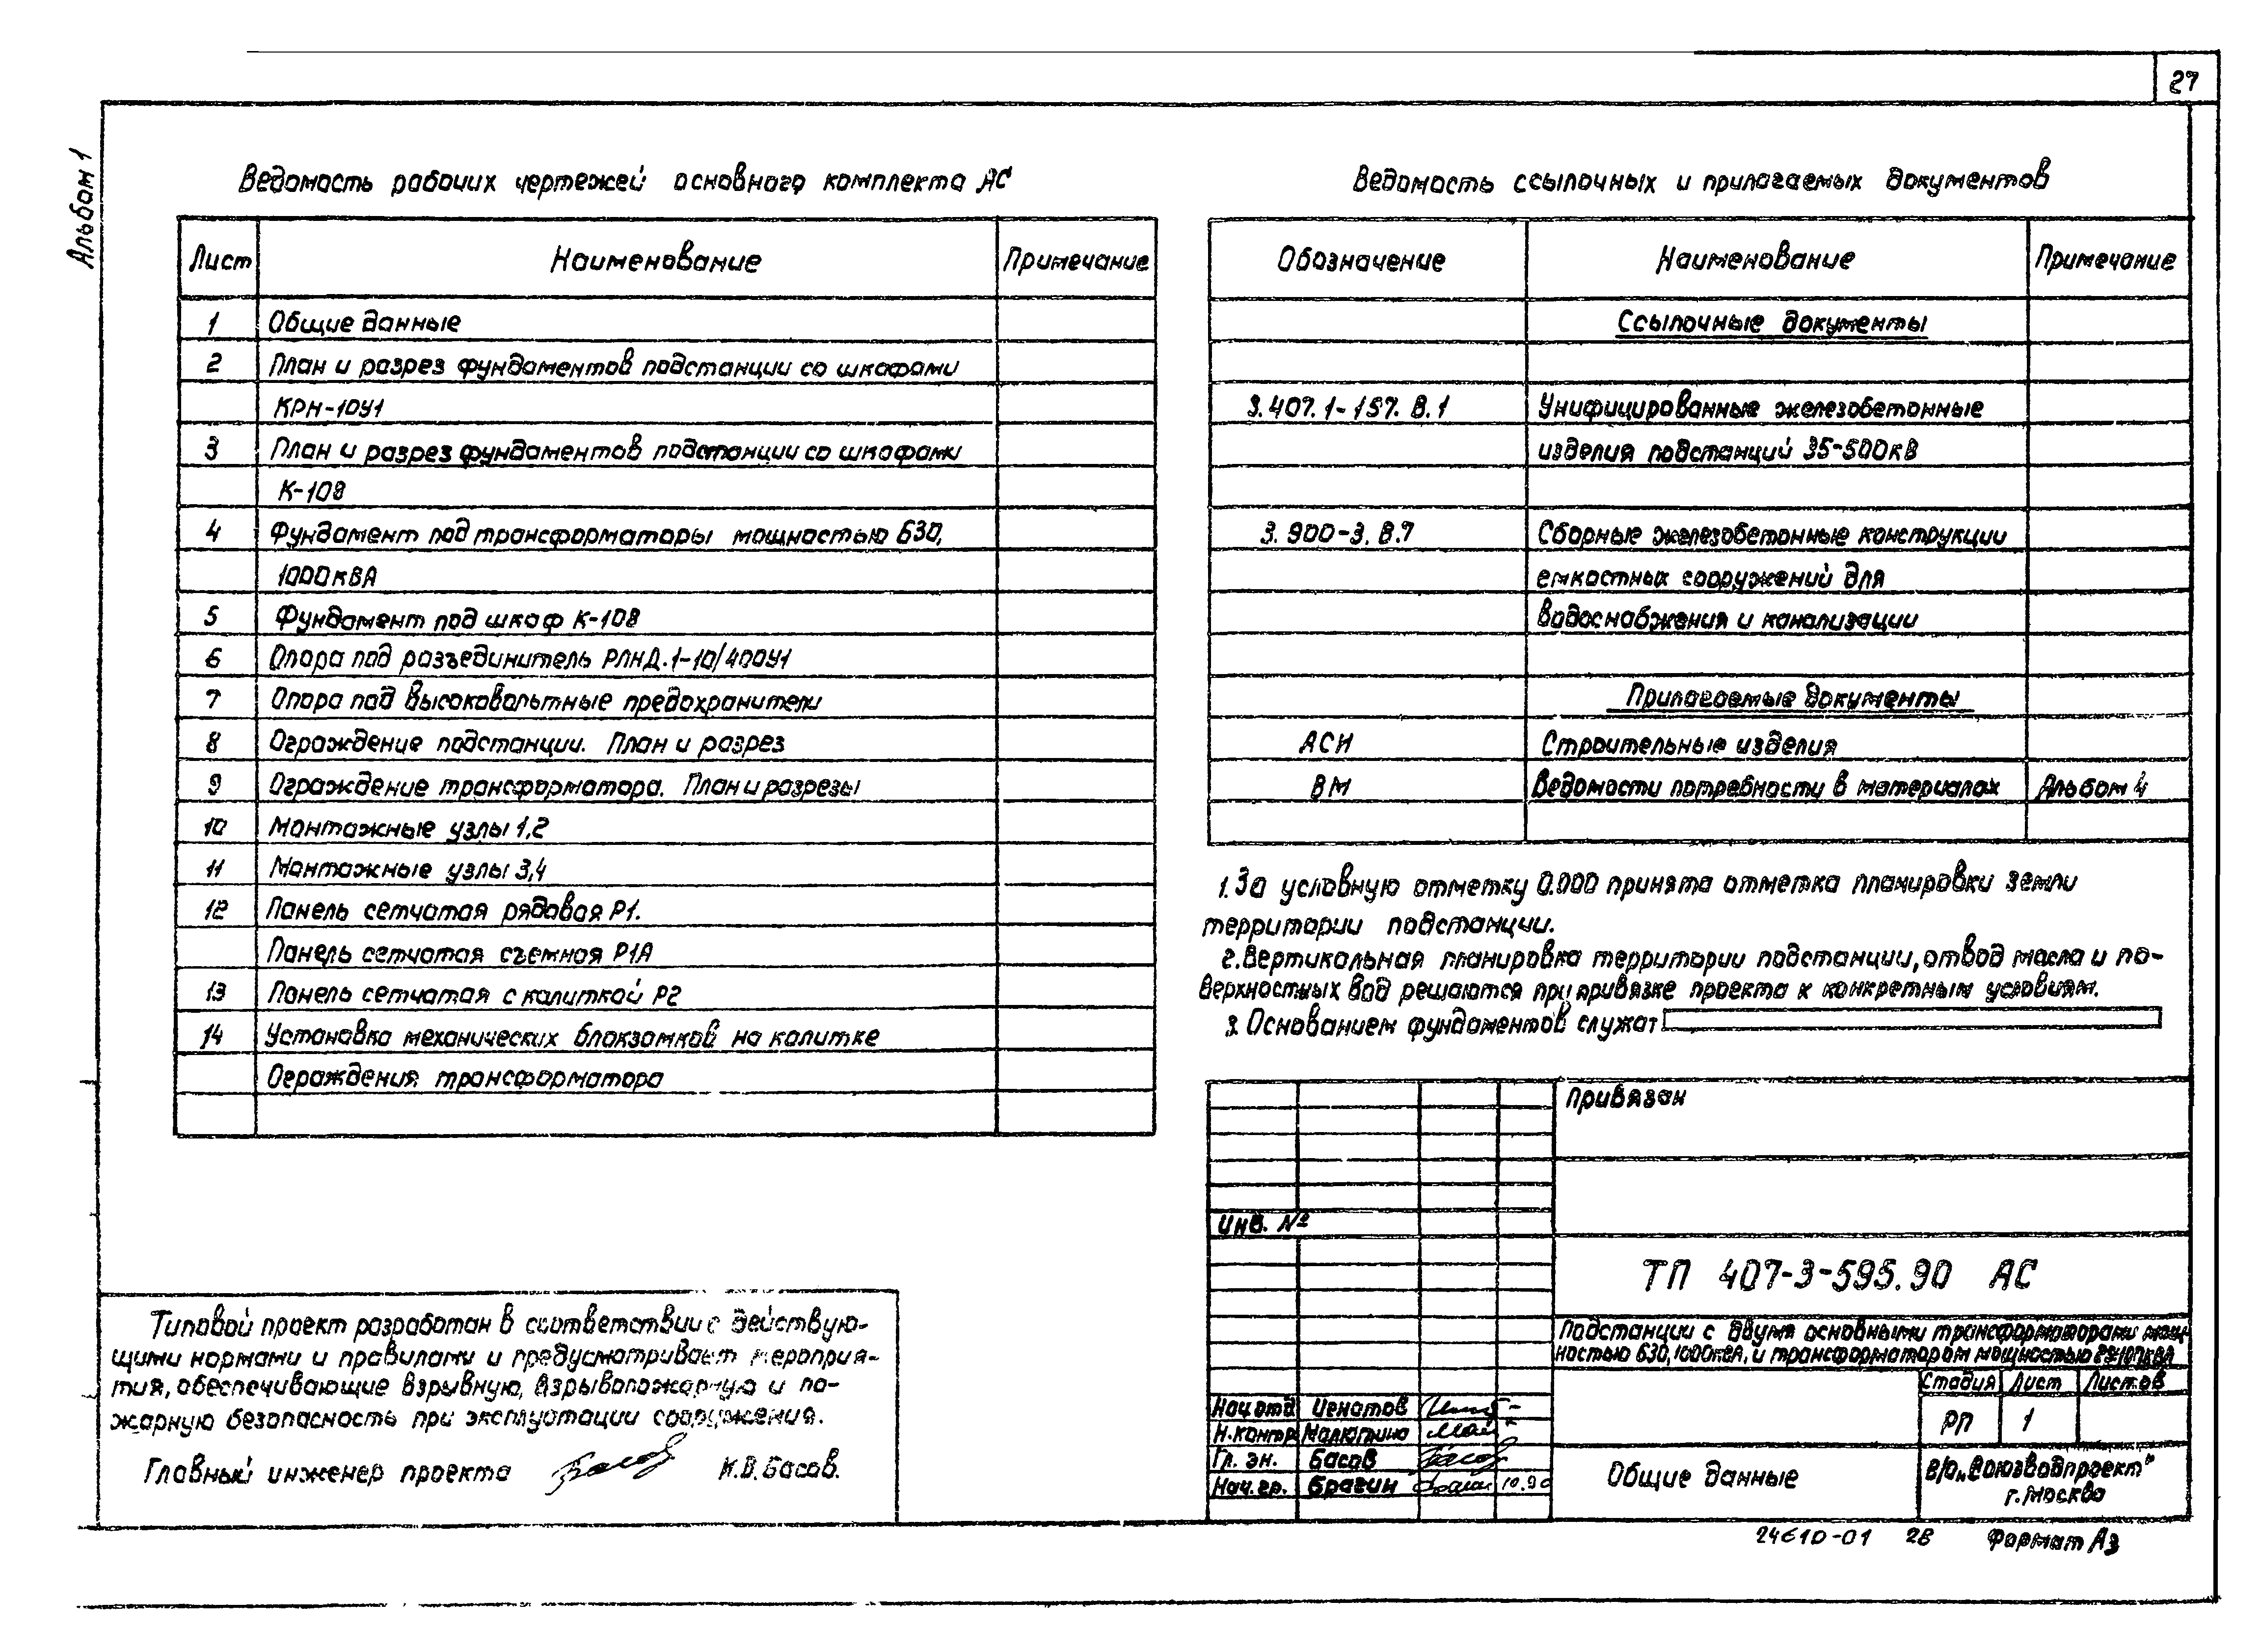 27
Альбом 1
Ведомость рабочих чертежей основного комплекта АС
Лист Наименование Примечание
1 Общие данные
2 План и разрез фундаментов подстанции со шкафами
КРН-10У1
3 План и разрез фундаментов подстанции со шкафами
К-108
4 Фундамент под трансформаторы мощностью 630,
1000кВА
5 Фундамент под шкаф К-108
6 Опора под разъединитель РЛНД.1-10/400У1
7 Опора под высоковольтные предохранители
8 Ограждение подстанции. План и разрез
9 Ограждение трансформатора. План и разрезы
10 Монтажные узлы 1,2
11 Монтажные узлы 3,4
12 Панель сетчатая рядовая Р1.
Панель сетчатая съемная Р1А
13 Панель сетчатая с калиткой Р2
14 Установка механических блокзамков на калитке
Ограждения трансформатора
Ведомость ссылочных и прилагаемых документов
Обозначение Наименование Примечание
Ссылочные документы
3.407.1-157. В.1 Унифицированные железобетонные
изделия подстанций 35-500кВ
3.900-3. В.7 Сборные железобетонные конструкции
емкостных сооружений для
водоснабжения и канализации
Прилагаемые документы
АСИ Строительные изделия
ВМ Ведомости потребности в материалах Альбом 4
1. За условную отметку 0.000 принята отметка планировки земли
территории подстанции.
2. Вертикальная планировка территории подстанции, отвод масла и по-
верхностных вод решаются при привязке проекта к конкретным условиям.
3. Основанием фундаментов служат
Типовой проект разработан в соответствии с действую-
щими нормами и правилами и предусматривает мероприя-
тия, обеспечивающие взрывную, взрывопожарную и по-
жарную безопасность при эксплуатации сооружения.
Главный инженер проекта Басов К.В.Басов.
Привязан
Инв. №
ТП 407-3-595.90 АС
Подстанции с двумя основными трансформаторами мощ-
ностью 630, 1000кВА, и трансформатором мощностью
Стадия Лист Листов
РП 1
Нач.отд Игнатов
Н.контр Малютина
Гл. эн. Басов Басов
Нач.гр. Брагин 10.90
Общие данные
В/О „Союзводпроект"
г. Москва
24610-01 28 Формат А3